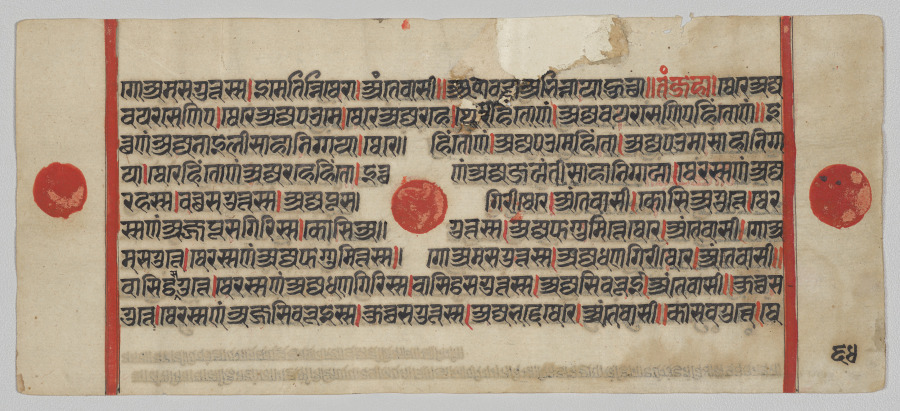 गोअमसगुत्तस्स।इमे तिन्नि थेरा।अंतेवासी॥अहावच्चा अभिन्नाया हुत्था॥तं जहा॥थेरे अज्ज
वयरसेणिए।थेरे अज्जपउमे।थेरे अज्जरहे।थेरेहिंतो णं।अज्जवयरसेणिएहिंतो णं॥इ
त्थ णं अज्जनाइली साहा निग्गया।थेरे॥ हिंतो णं।अज्जपउमेहिंतो।अज्जपउमा साहा निग्ग
या।थेरेहिंतो णं अज्जरहेहिंतो।इत्थ णं अज्जजयंती साहा निग्गया।थेरस्स णं अज्ज
रहस्स।वच्छसगुत्तस्स।अज्जपूस। गिरी थेरे।अंतेवासी।कोसिअगुत्ते।थेर
स्स णं अज्जपूसगिरिस्स।कोसिअ॥ गुत्तस्स।अज्जफगुमित्ते थेरे।अंतेवासी।गोअ
मसगुत्ते।थेरस्स णं अज्जफगुमित्तस्स। गोअमसगुत्तस्स।अज्जधणगिरी थेरे।अंतेवासी॥
वासिट्ठसगुत्ते।थेरस्स णं अज्जधणगिरिस्स।वासिट्ठसगुत्तस्स।अज्जसिवभूई अंतेवासी॥कुच्छस
गुत्ते।थेरस्स णं अज्जसिवभूइस्स।कुच्छसगुत्तस्स।अज्जभद्दे थेरे।अंतेवासी॥कासवगुत्ते।थे
६४